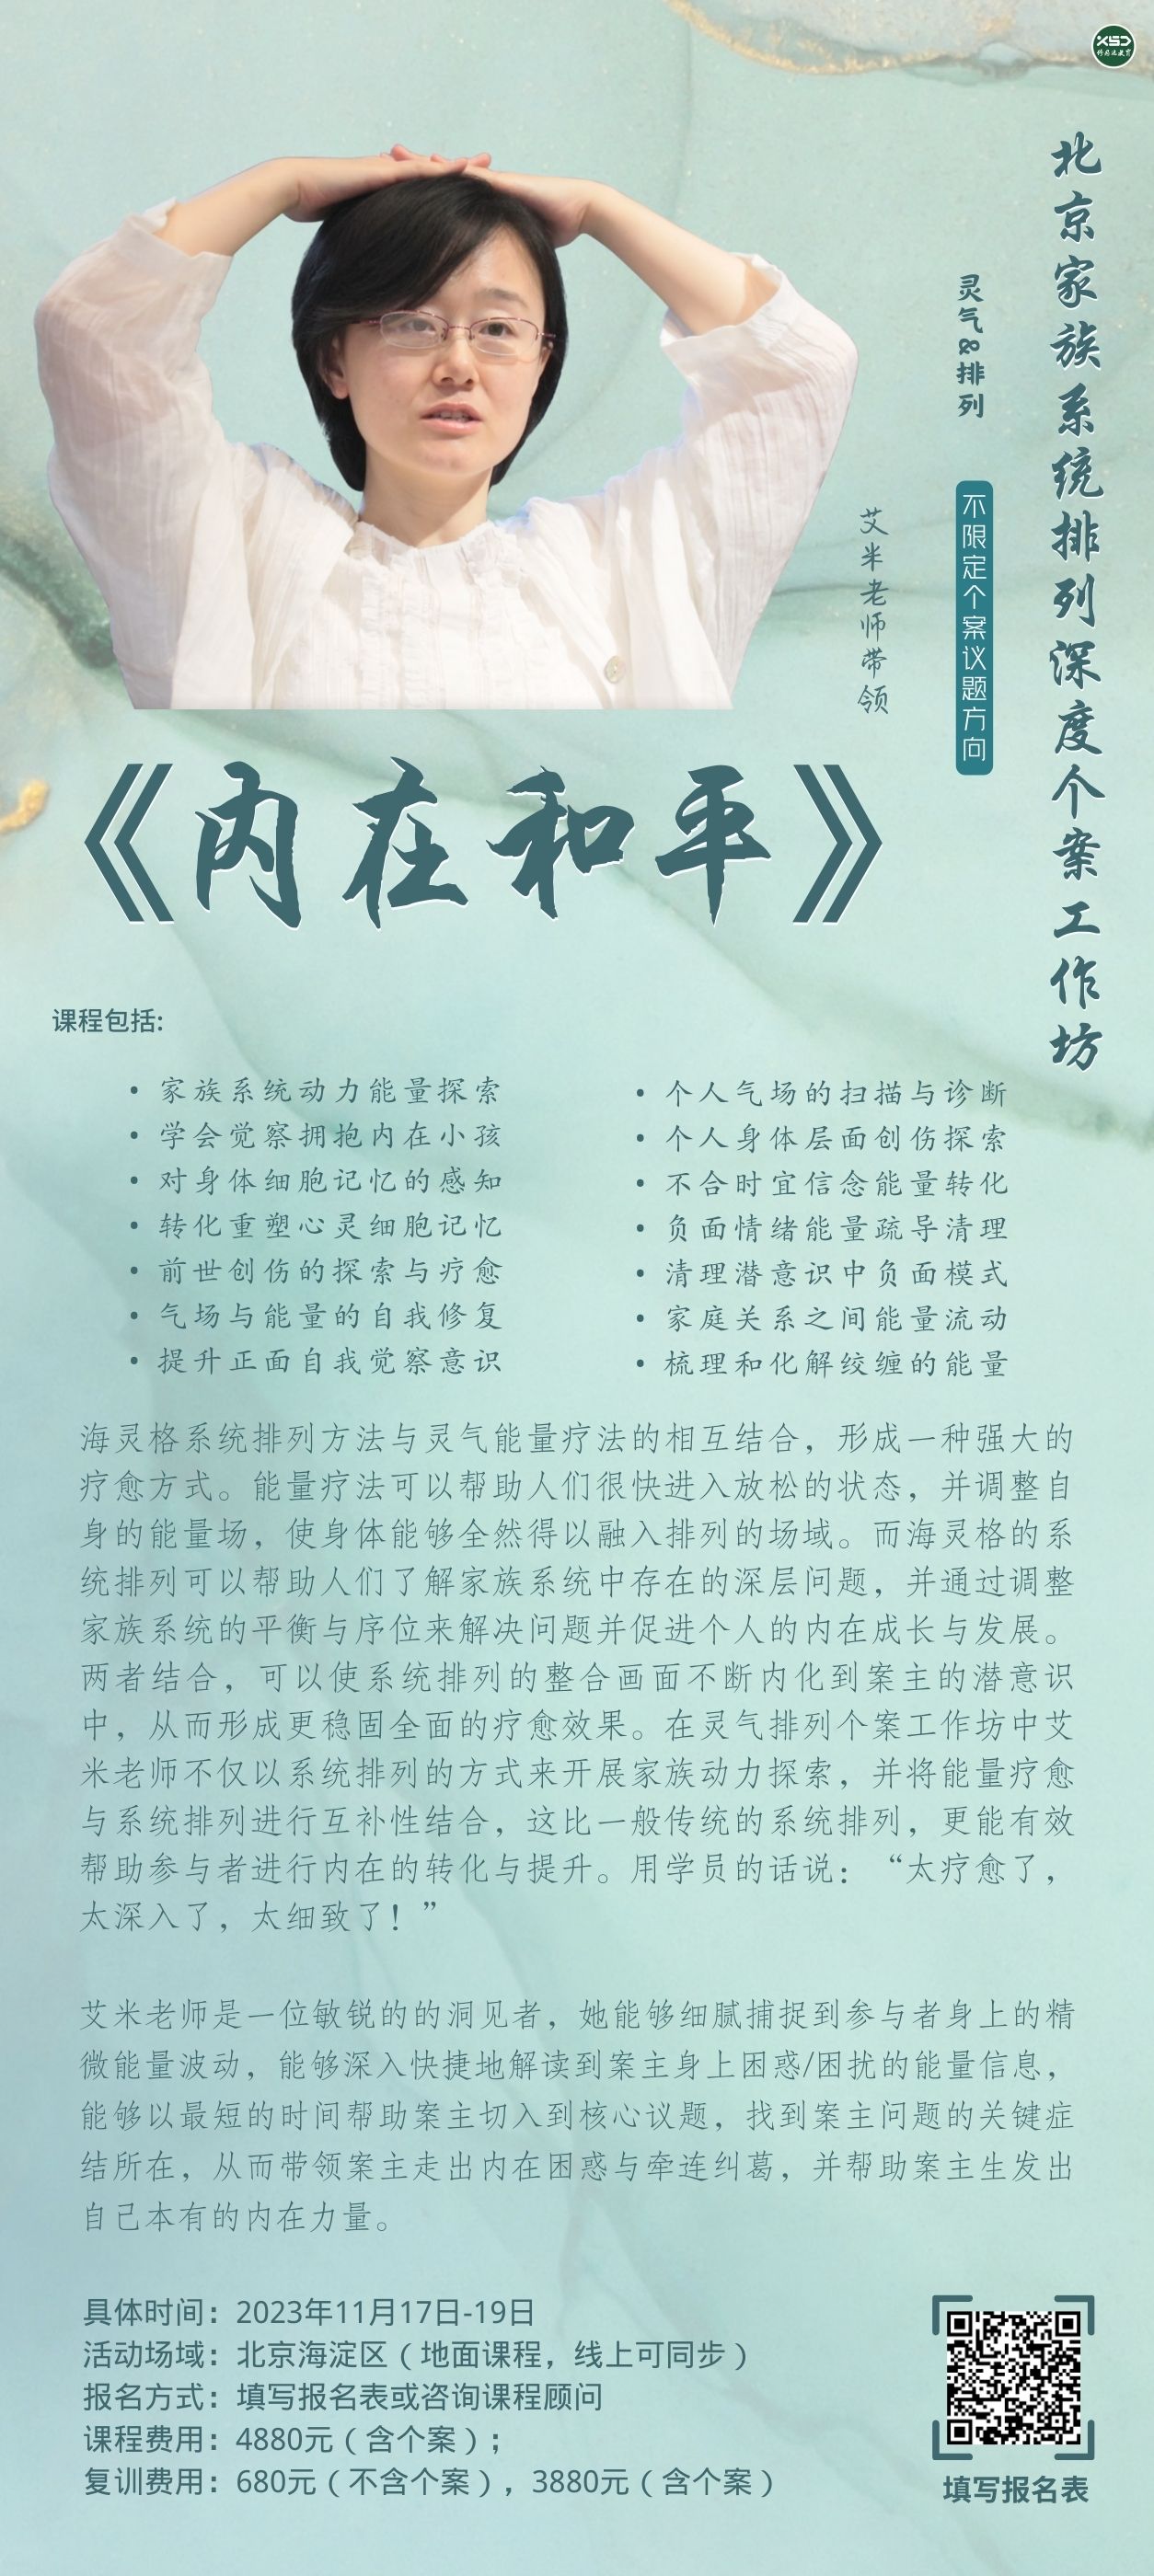 XSD
北京家族系统排列深度个案工作坊
灵气&排列
不限定个案议题方向
艾米老师带领
《内在和平》
课程包括:
• 家族系统动力能量探索
• 学会觉察拥抱内在小孩
• 对身体细胞记忆的感知
• 转化重塑心灵细胞记忆
• 前世创伤的探索与疗愈
• 气场与能量的自我修复
• 提升正面自我觉察意识
• 个人气场的扫描与诊断
• 个人身体层面创伤探索
• 不合时宜信念能量转化
• 负面情绪能量疏导清理
• 清理潜意识中负面模式
• 家庭关系之间能量流动
• 梳理和化解绞缠的能量
海灵格系统排列方法与灵气能量疗法的相互结合，形成一种强大的
疗愈方式。能量疗法可以帮助人们很快进入放松的状态，并调整自
身的能量场，使身体能够全然得以融入排列的场域。而海灵格的系
统排列可以帮助人们了解家族系统中存在的深层问题，并通过调整
家族系统的平衡与序位来解决问题并促进个人的内在成长与发展。
两者结合，可以使系统排列的整合画面不断内化到案主的潜意识
中，从而形成更稳固全面的疗愈效果。在灵气排列个案工作坊中艾
米老师不仅以系统排列的方式来开展家族动力探索，并将能量疗愈
与系统排列进行互补性结合，这比一般传统的系统排列，更能有效
帮助参与者进行内在的转化与提升。用学员的话说：“太疗愈了，
太深入了，太细致了！”
艾米老师是一位敏锐的的洞见者，她能够细腻捕捉到参与者身上的精
微能量波动，能够深入快捷地解读到案主身上困惑/困扰的能量信息，
能够以最短的时间帮助案主切入到核心议题，找到案主问题的关键症
结所在，从而带领案主走出内在困惑与牵连纠葛，并帮助案主生发出
自己本有的内在力量。
具体时间：2023年11月17日-19日
活动场域：北京海淀区（地面课程，线上可同步）
报名方式：填写报名表或咨询课程顾问
课程费用：4880元（含个案）；
复训费用：680元（不含个案），3880元（含个案）
填写报名表